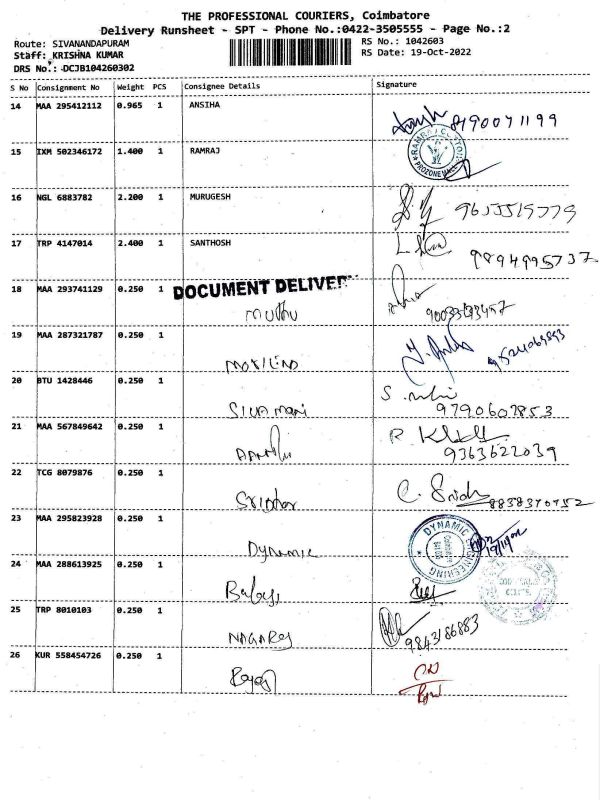 THE PROFESSIONAL COURIERS, Coimbatore
Delivery Runsheet - SPT - Phone No.:0422-3505555 - Page No.:2
Route: SIVANANDAPURAM
RS No.: 1042603
Staff: KRISHNA KUMAR
RS Date: 19-Oct-2022
DRS No.: DCJB104260302
S No Consignment No Weight PCS Consignee Details Signature
14 MAA 295412112 0.965 1 ANSIHA
8190071199
15 IXM 502346172 1.400 1 RAMRAJ
RAMRAJ COTTON
PROZONE MALL
16 NGL 6883782 2.200 1 MURUGESH
17 TRP 4147014 2.400 1 SANTHOSH
9894995737
18 MAA 293741129 0.250 1
DOCUMENT DELIVER
Muthu
19 MAA 287321787 0.250 1
20 BTU 1428446 0.250 1
Siva mani
9790607853
21 MAA 567849642 0.250 1
9363622039
22 TCG 8079876 0.250 1
Sridhar
C. Sridh
8838370952
23 MAA 295823928 0.250 1
Dynamic
DYNAMIC ENGINEERING
24 MAA 288613925 0.250 1
Balaji
25 TRP 8010103 0.250 1
NAGARAJ
9843186883
26 KUR 558454726 0.250 1